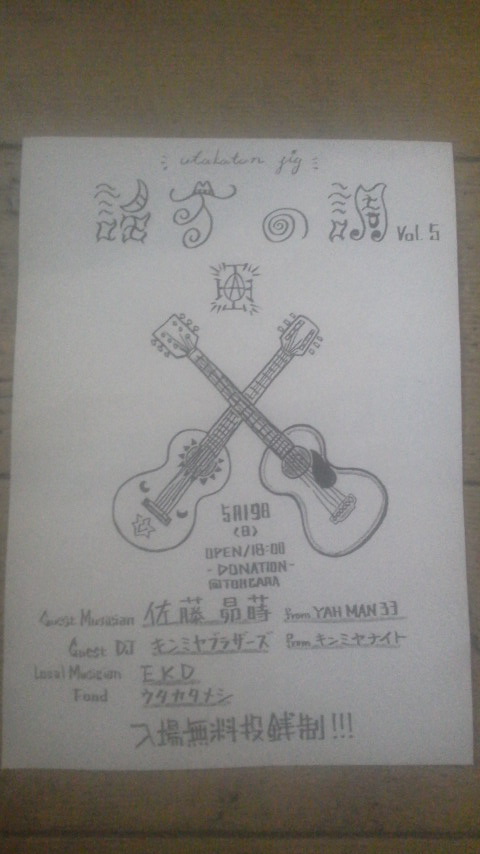 utakatan jig
調 Vol. 5
5月19日
(日)
OPEN/18:00
- DONATION -
@TOHGARA
Guest Musisian 佐藤 昂蒔 from YAH MAN 33
Guest DJ キンミヤブラザーズ from キンミヤナイト
Local Musisian EKD
Food ウタカタメシ
入場無料投銭制!!!